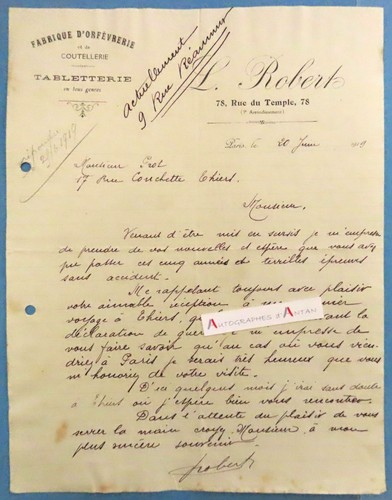 FABRIQUE D'ORFÈVRERIE
et de
COUTELLERIE
TABLETTERIE
en tous genres
actuellement
9 Rue Réaumur
L. Robert
78, Rue du Temple, 78
(3e Arrondissement)
Paris, le 20 Juin 19 9
Monsieur Prot
17 Rue Conchette Thiers.
Monsieur,
Venant d'être mis en sursis je m'empresse
de prendre de vos nouvelles et espère que vous avez
pu passer ces cinq années de terribles épreuves
sans accident.
Me rappelant toujours avec plaisir
votre aimable réception à mon dernier
voyage à Thiers, avant la
déclaration de guerre je m'empresse de
vous faire savoir qu'au cas où vous vien-
driez à Paris je serais très heureux que vous
m'honoriez de votre visite.
D'ici quelques mois j'irai sans doute
à Thiers où j'espère bien vous rencontrer.
Dans l'attente du plaisir de vous
serrer la main croyez, Monsieur, à mon
plus sincère souvenir.
Robert
AUTOGRAPHES D'ANTAN